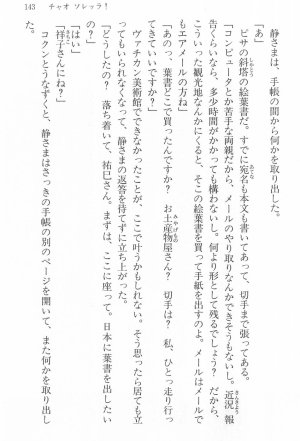 143　チャオ ソレッラ！
　静さまは、手帳の間から何かを取り出した。
「あ」
　ピサの斜塔の絵葉書だ。すでに宛名も本文も書いてあって、切手まで張ってある。
「コンピュータとか苦手な両親だから、メールのやり取りなんかできそうもないし。近況報
告くらいなら、多少時間がかかっても構わないし。何より形として残るでしょう？　だから、
こういう観光地なんかにくると、そこの絵葉書を買って手紙を出すのよ。メールはメールで
もエアメールの方ね」
「あのっ、葉書どこで買ったんですか？　お土産物屋さん？　切手は？　私、ひとっ走り行っ
てきていいですか？」
　ヴァチカン美術館でできなかったことが、ここで叶うかもしれない。そう思ったら居ても立
ってもいられなくなって、静さまの返答を待てずに立ち上がった。
「どうしたの？　落ち着いて、祐巳さん。まずは、ここに座って。日本に葉書を出したい
「祥子さんにね？」
　コクンとうなずくと、静さまはさっきの手帳の別のページを開いて、また何かを取り出し
た。